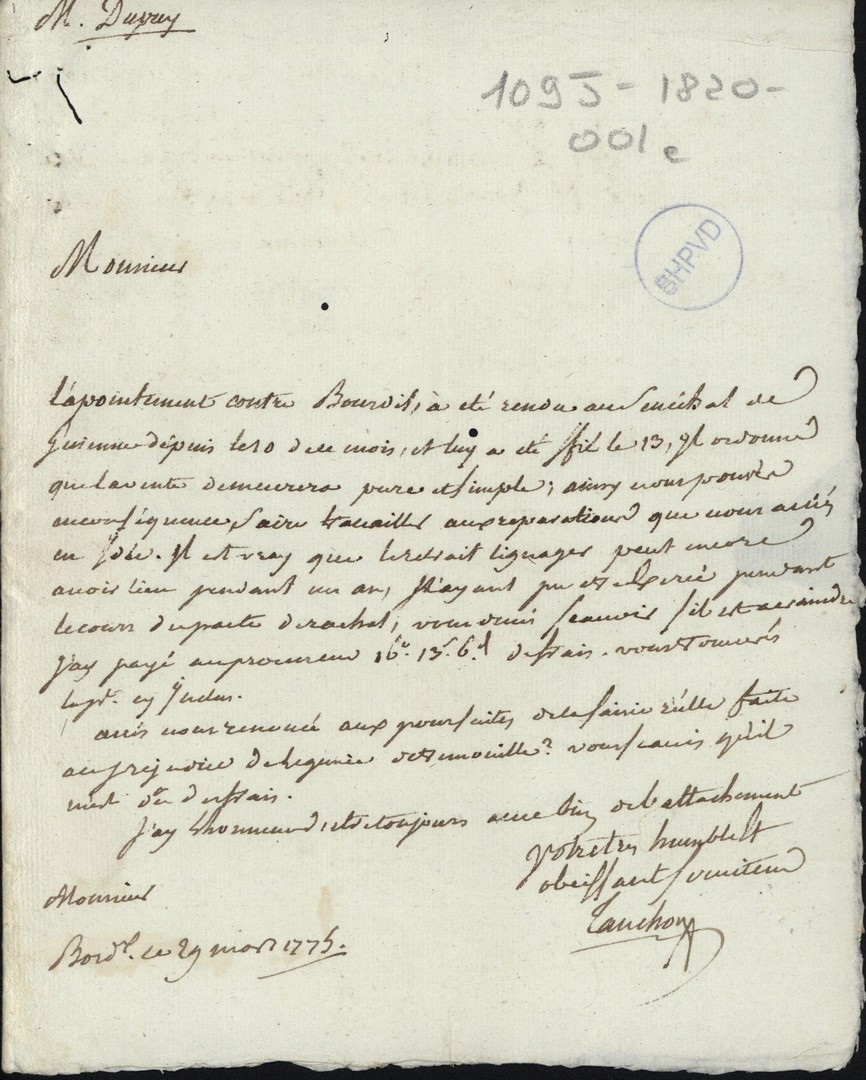 M. Dupuy
1095-1820-
001e
SHPVD
Monsieur
l'apointement contre Bourdil, à été rendu au Senechal de
Guienne depuis le 10 de ce mois, et luy a été le 13, Il ordonne
que la vente demeurera pure et simple; ainsy vous pouvés
en conséquence faire travailler aux reparations que vous aviés
en . Il est vray que le retrait lignager peut encore
avoir lieu pendant un an, n'ayant pu pendant
le cours du pacte de rachat, vous devés scavoir s'il est a craindre
J'ay payé au procureur 16 13 6 de frais. vous trouverés
cy Inclus.
avés vous renoncé aux poursuites de la saisie réelle faite
au prejudice de vous scavés qu'il
m'est du de frais.
J'ay l'honneur d'etre toujours avec bien de l'attachement
Votre tres humble et
obeissant serviteur
Tauchon
Monsieur
Bord. ce 29 mars 1775.